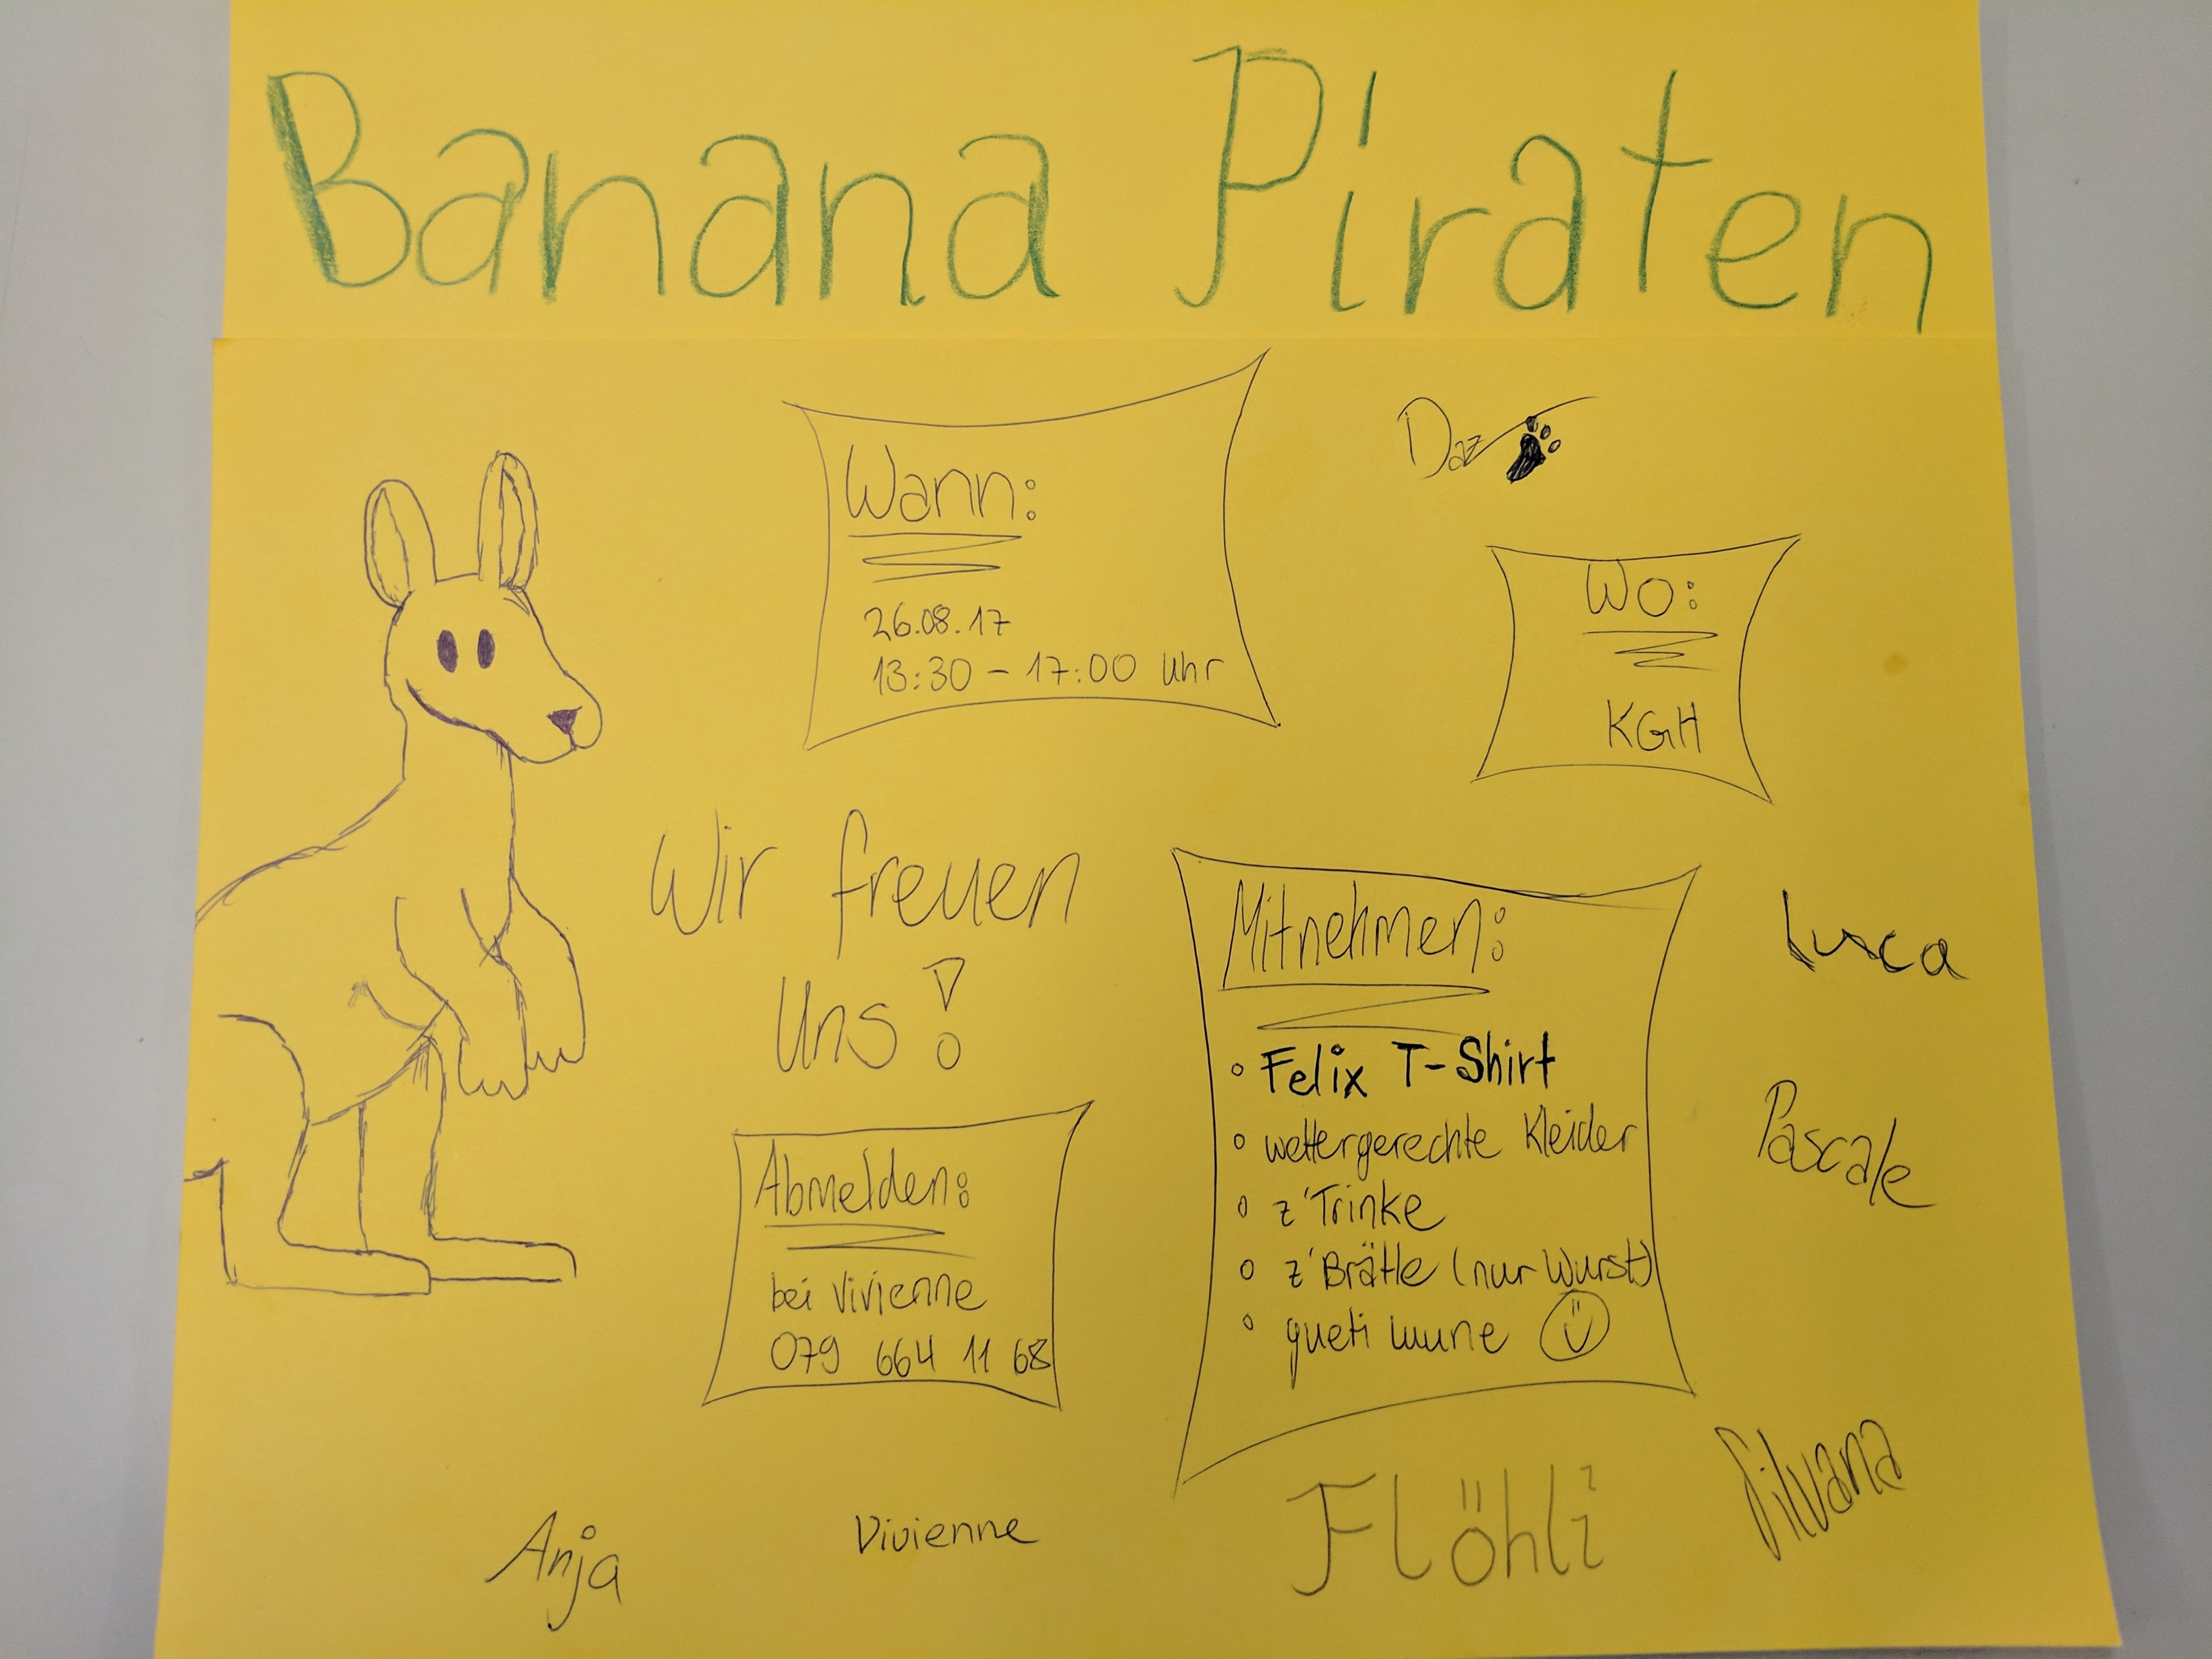 Banana Piraten
Wann:
26.08.17
13:30 - 17:00 Uhr
Daz
Wo:
KGH
Wir freuen
Uns!
Mitnehmen:
Felix T-Shirt
wettergerechte Kleider
z'Trinke
z'Brätle (nur Wurst)
gueti luune
Abmelden:
bei Vivienne
079 664 11 68
Lusca
Pascale
Silvana
Anja
Vivienne
Flöhli